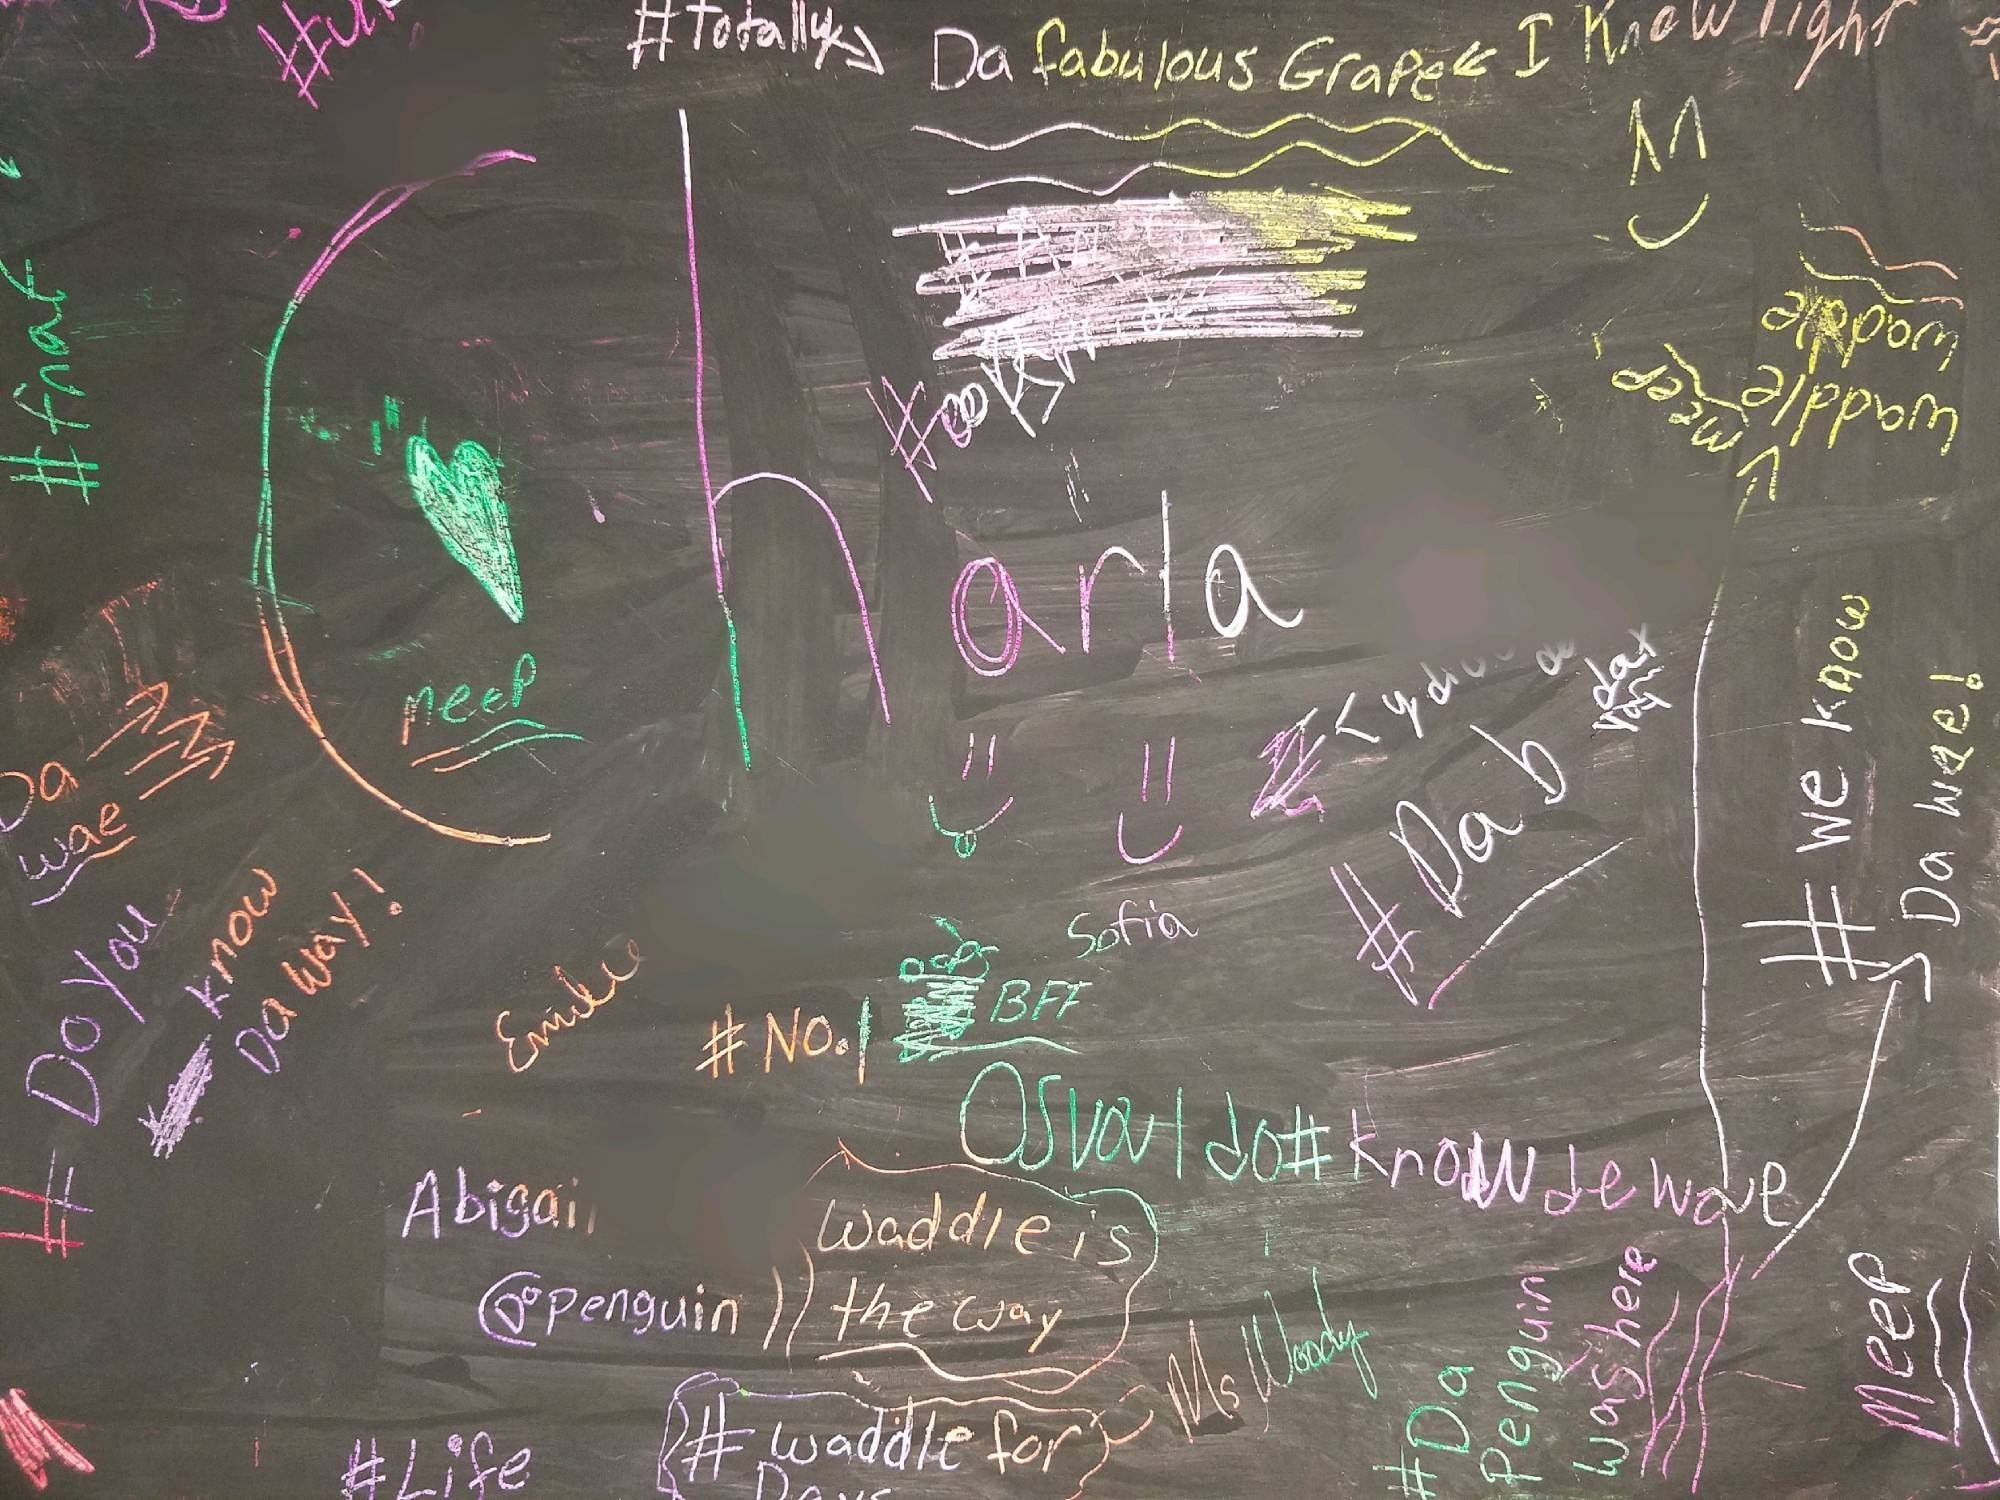 #Totally
Da fabulous Grape
I Know right
#fnaf
waddle
waddle
Charla
meep
#We know
Da wae!
Da
wae
#Dab
#Do you
know
Da way!
Sofia
Emilee
#NO.1
BFF
Osvaldo
#know de wae
Abigail
@Da penguin
waddle is
the way
Ms Woody
#Da
Penguin
was here
Meep
#Life
#waddle for
Days